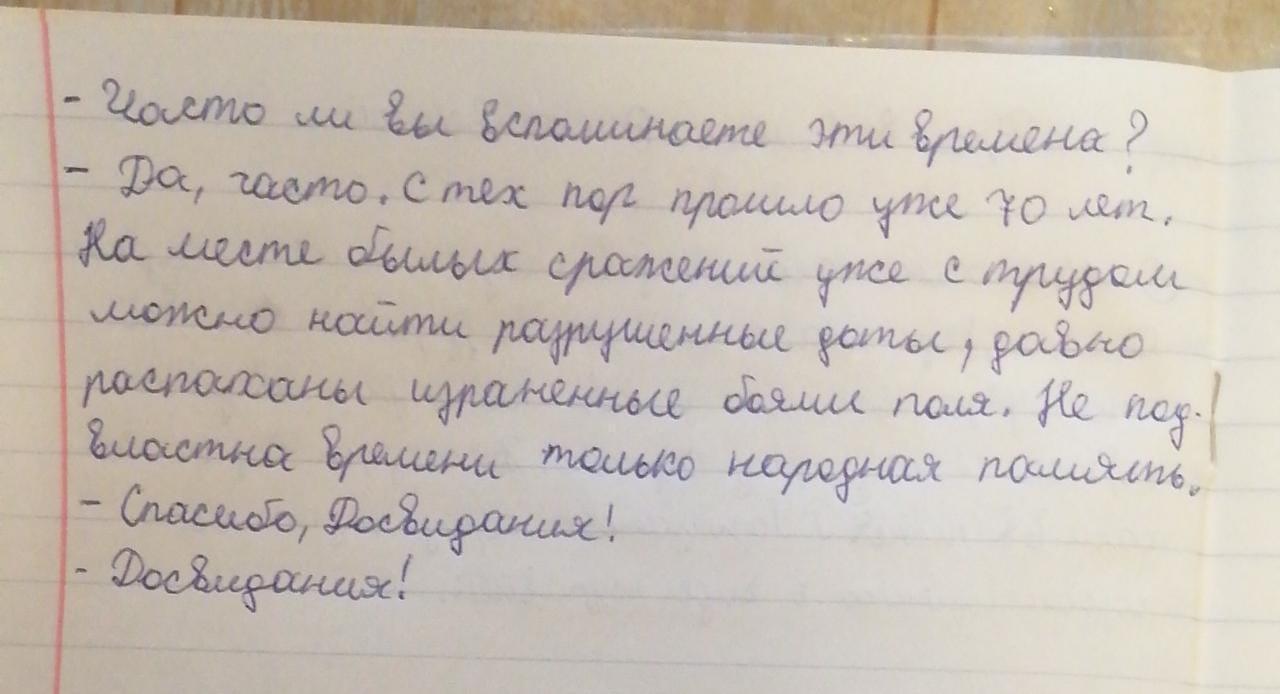 - Часто ли вы вспоминаете эти времена?
- Да, часто. С тех пор прошло уже 70 лет.
На месте былых сражений уже с трудом
можно найти разрушенные доты, давно
распаханы израненные боями поля. Не под-
властна времени только народная память.
- Спасибо, Досвидания!
- Досвидания!